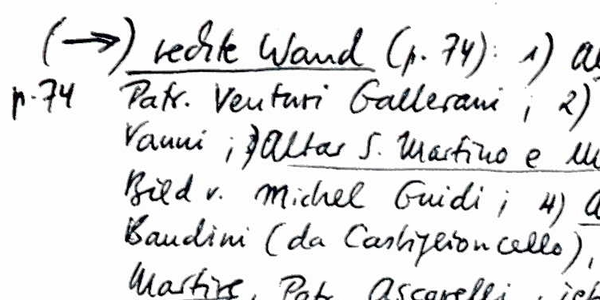 (→) rechte Wand (p. 74): 1)
p. 74 Patr. Venturi Gallerani ; 2)
Vanni ; 3) Altar S. Martino e
Bild v. Michel Guidi ; 4)
Bandini (da Castiglioncello),
Martire, Patr. Ascarelli,